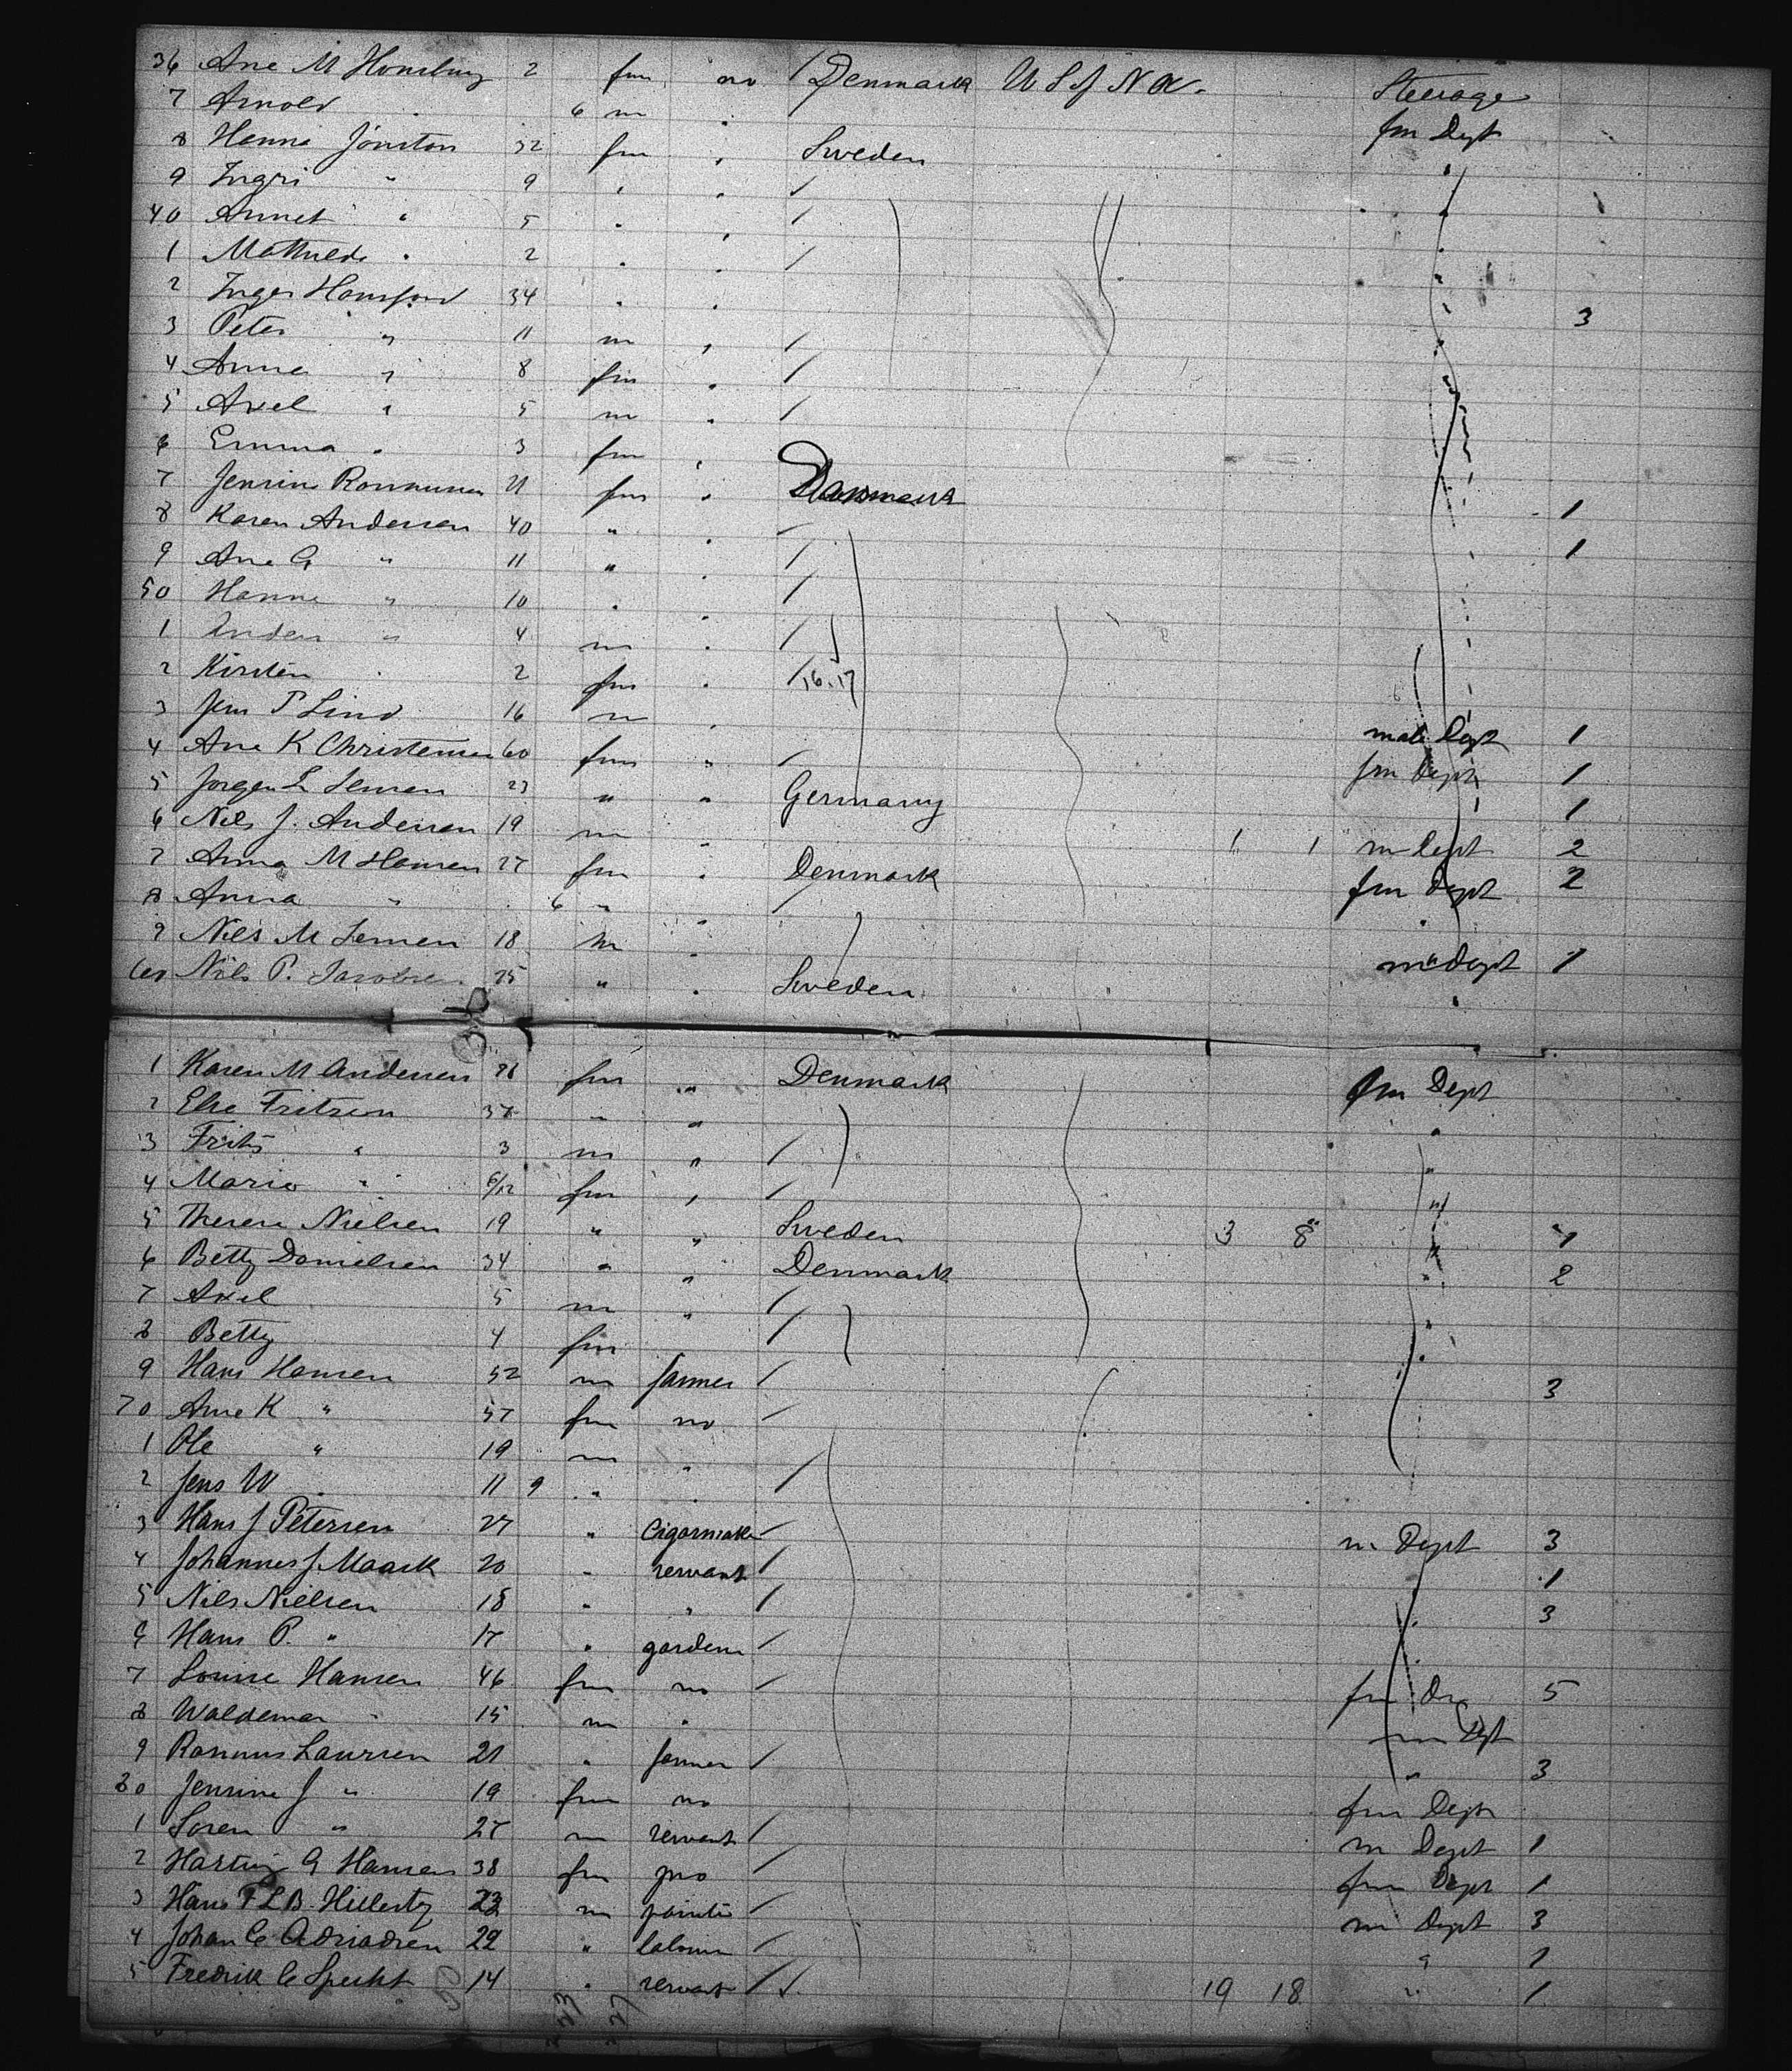 36 Ane M Homburg 2 fm no / Denmark U S of N A. Steerage
7 Arnold " 6 m " fm Dept
8 Hanna Jonston 32 fm " Sweden "
9 Ingri " 9 " " / "
40 Annet " 5 " " / "
1 Mathilde " 2 " " / "
2 Inger 34 " " " 3
3 Peter " 11 m " / "
4 Anna " 8 fm " / "
5 Axel " 5 m " / "
6 Emma " 3 fm "
7 Jensine Rasmussen 21 fm " Danmark 1
8 Karen Andersen 40 " " / 1
9 Ane G " 11 " " /
50 Hanne " 10 " " /
1 Anders " 4 m " /
2 Kirsten " 2 fm " / 16.17
3 Jens P Lind 16 m " male Dept 1
4 Ane K Christensen 60 fm " / fm Dept 1
5 Jorgen L 23 " " Germany 1
6 Nils J. Andersen 19 m " 1 1 m Dept 2
7 Anna M Hansen 27 fm " Denmark fm Dept 2
8 Anna " 6 " " / "
9 Nils M Jensen 18 m " m Dept 1
60 Nils P. Jacobsen 25 " " Sweden "
1 Karen M Andersen fm " Denmark fm Dept
2 Else Fritsen 37 " " "
3 Frits " 3 m " / "
4 Marie " 6/12 fm " / "
5 Therese Nielsen 19 " " Sweden 3 8 " 1
6 Betty Danielsen 34 " " Denmark " 2
7 Axel 5 m " / "
8 Betty 4 fm / "
9 Hans Hansen 52 m farmer / 3
70 Ane K " 57 fm no /
1 Ole " 19 m "
2 Jens W 11 9 " " /
3 Hans J Petersen 27 " Cigarmaker / m Dept 3
4 Johannes J. Maack 20 " servant / 1
5 Nils Nielsen 18 " " / " 3
6 Hans P. " 17 " gardener / "
7 Louise Hansen 46 fm no / fm 5
8 Waldemar " 15 m " m Dpt
9 Rasmus Laursen 21 " farmer / " 3
80 Jensine J " 19 fm no fm Dept
1 Soren " 27 m servant / m Dept 1
2 G Hansen 38 fm no / fm Dept 1
3 Hans F L B. Hillertz 23 m painter / m Dept 3
4 Johan C 22 " labourer / " 1
5 Fredrik C Specht 14 " servant / 19 18 " 1